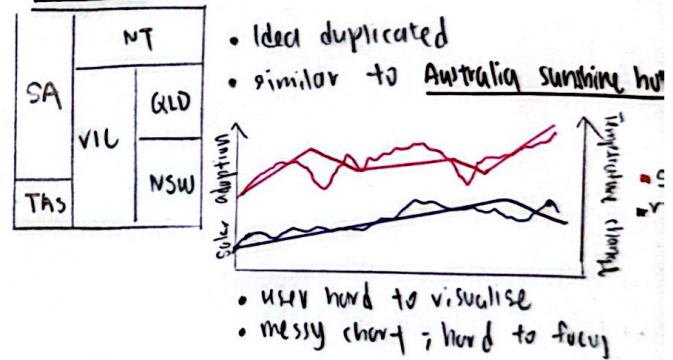 NT
SA
VIC
QLD
NSW
TAS
• Idea duplicated
• similar to Australia sunshine
solar adoption
Temperature
• user hard to visualise
• messy chart ; hard to focus